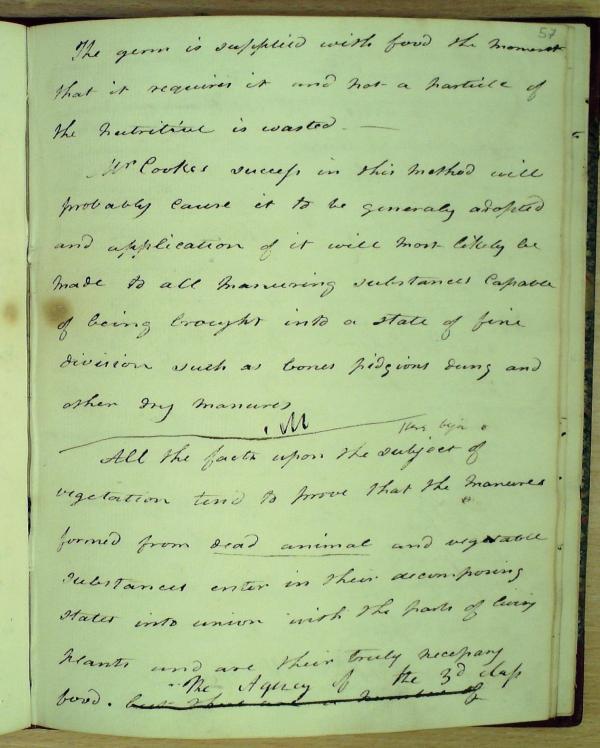 57
The germ is supplied with food the moment
that it requires it and not a particle of
the nutritive is wasted —
Mr Cookes success in this method will
probably cause it to be generaly adopted
and application of it will most likely be
made to all manuring substances capable
of being brought into a state of fine
division such as bones pidgions dung and
other dry manures
Here begin
All the facts upon the subject of
vegetation tend to prove that the manures
formed from dead animal and vegetable
substances enter in their decomposing
states into union with the parts of living
plants and are their truly necessary
The Agency of the 3d class
food. but there are a number of